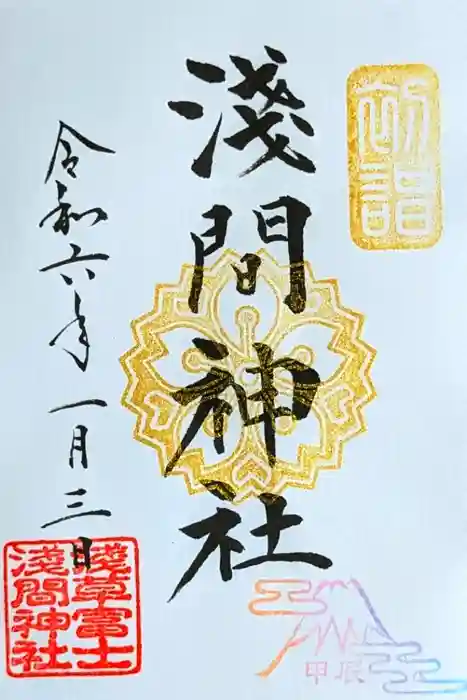 初詣
淺間神社
令和六年一月三日
淺草富士
淺間神社
甲辰